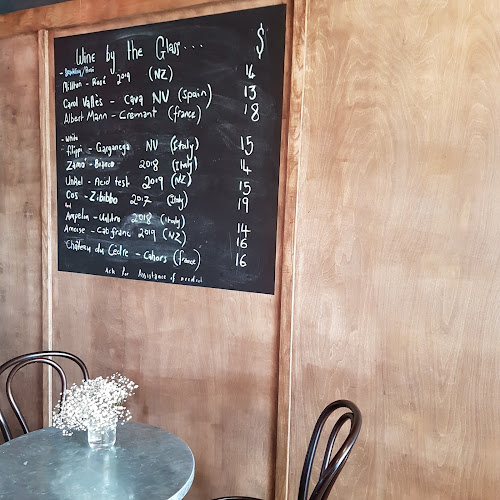 Wine by the Glass .... $
- Sparkling/Rosé
Millton - Rosé 2019 (NZ) 14
Carol Vallés - Cava NV (Spain) 13
Albert Mann - Crémant (france) 18
- White
filippi - Garganega NV (Italy) 15
Bianco 2018 (Italy) 14
Unkel - Acid test 2019 (NZ) 15
Cos - Zibibbo 2017 (Italy) 19
Red
Ampelia - Unlitro 2018 (Italy) 14
Amoise - Cab franc 2019 (NZ) 16
Château du Cèdre - Cahors (france) 16
Ask For Assistance if needed